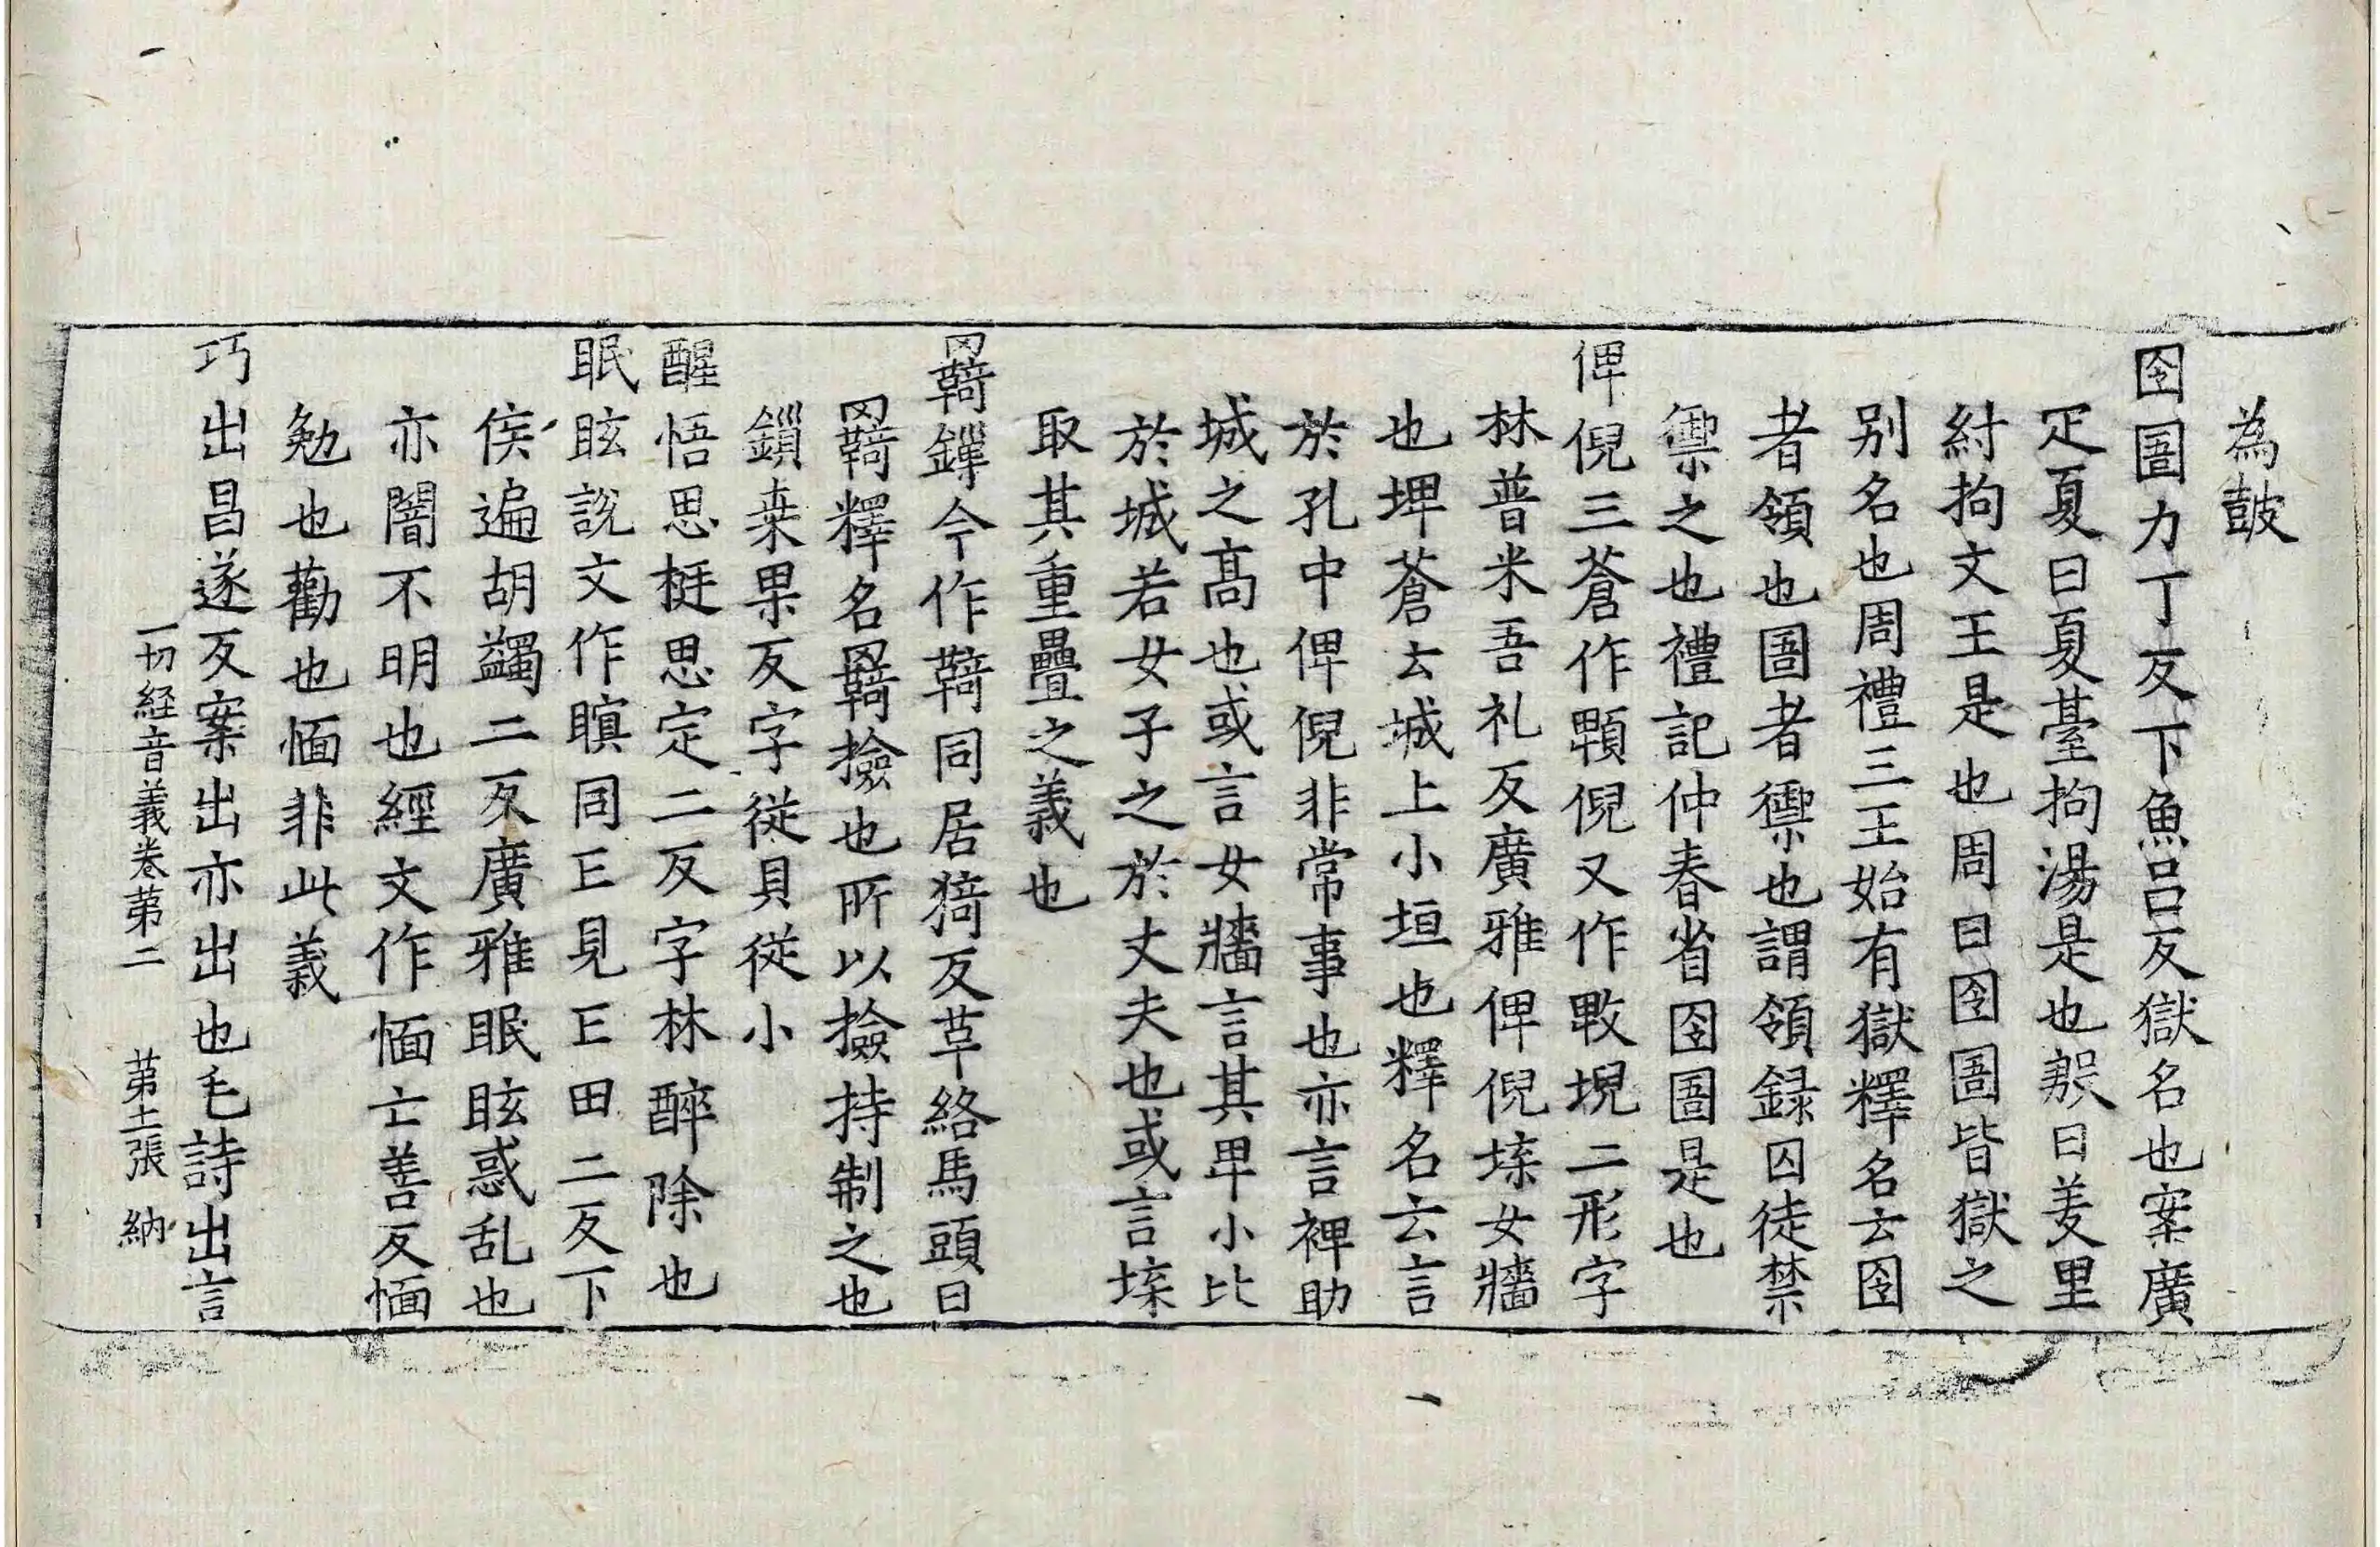 為皷
囹圄力丁反下魚呂反獄名也案廣
疋夏曰夏臺拘湯是也殷曰羑里
紂拘文王是也周曰囹圄皆獄之
别名也周禮三王始有獄釋名云囹
者領也圄者禦也謂領録囚徒禁
禦之也禮記仲春省囹圄是也
俾倪三蒼作顊倪又作㪏堄二形字
林普米吾礼反廣雅俾倪㙇女牆
也埤蒼云城上小垣也釋名云言
於孔中俾倪非常事也亦言裨助
城之髙也或言女牆言其卑小比
於城若女子之於丈夫也或言㙇
取其重疊之義也
羈鏁今作羇同居猗反革絡馬頭曰
羈釋名羈撿也所以撿持制之也
鎖桒果反字從貝從小
醒悟思挺思定二反字林醉除也
眠眩說文作瞑同亡見亡田二反下
侯遍胡蠲二反廣雅眠眩惑乱也
亦闇不明也經文作愐亡善反愐
勉也勸也愐非此義
巧出昌遂反案出亦出也毛詩出言
一切経音義卷第二 第土張 納